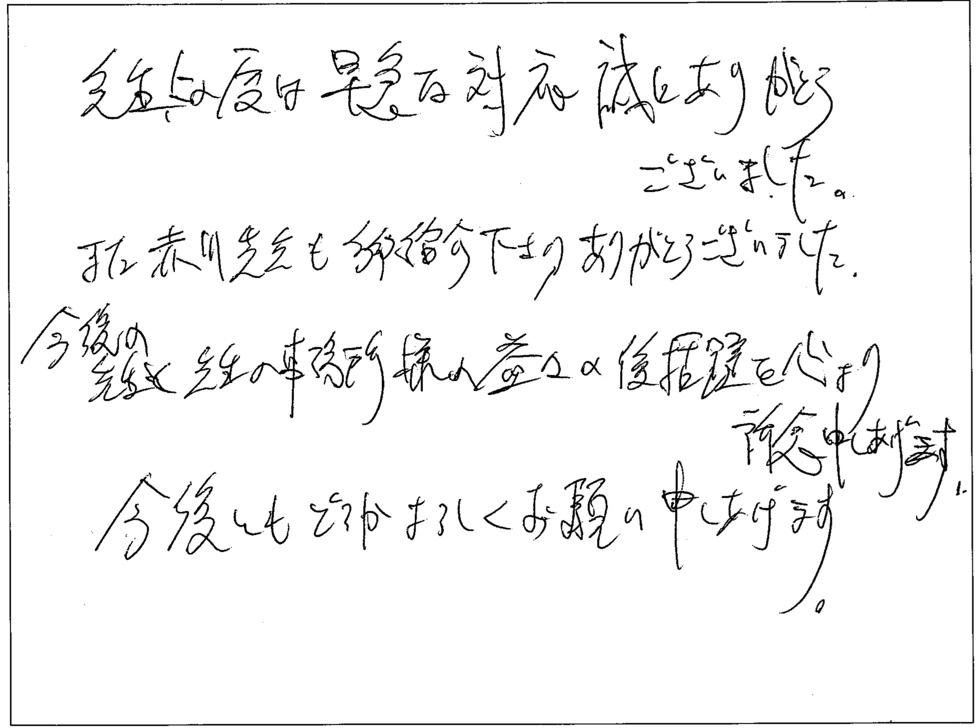 先生この度は早急な対応誠にありがとう
ございました。
また赤川先生も御紹介下さりありがとうございました.
今後の
先生と先生の事務所様の益々の後括躍を心より
祈念申しあげます.
今後ともどうかよろしくお願い申しあげます。